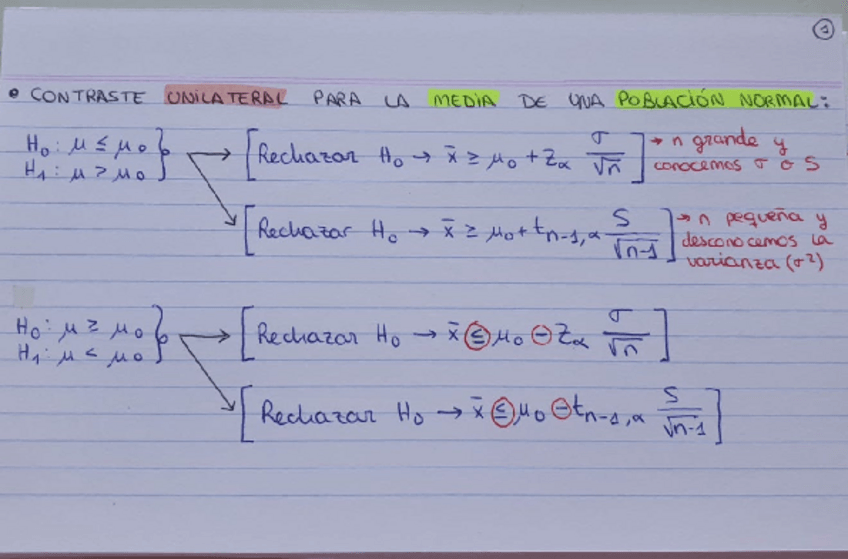 1
• CONTRASTE UNILATERAL PARA LA MEDIA DE UNA POBLACIÓN NORMAL:
H₀: μ ≤ μ₀
H₁: μ > μ₀
[Rechazar H₀ → x̄ ≥ μ₀ + Zα σ/√n]
→ n grande y
conocemos σ o S
[Rechazar H₀ → x̄ ≥ μ₀ + tₙ₋₁,α S/√n-1]
→ n pequeña y
desconocemos la
varianza (σ²)
H₀: μ ≥ μ₀
H₁: μ < μ₀
[Rechazar H₀ → x̄ ≤ μ₀ − Zα σ/√n]
[Rechazar H₀ → x̄ ≤ μ₀ − tₙ₋₁,α S/√n-1]